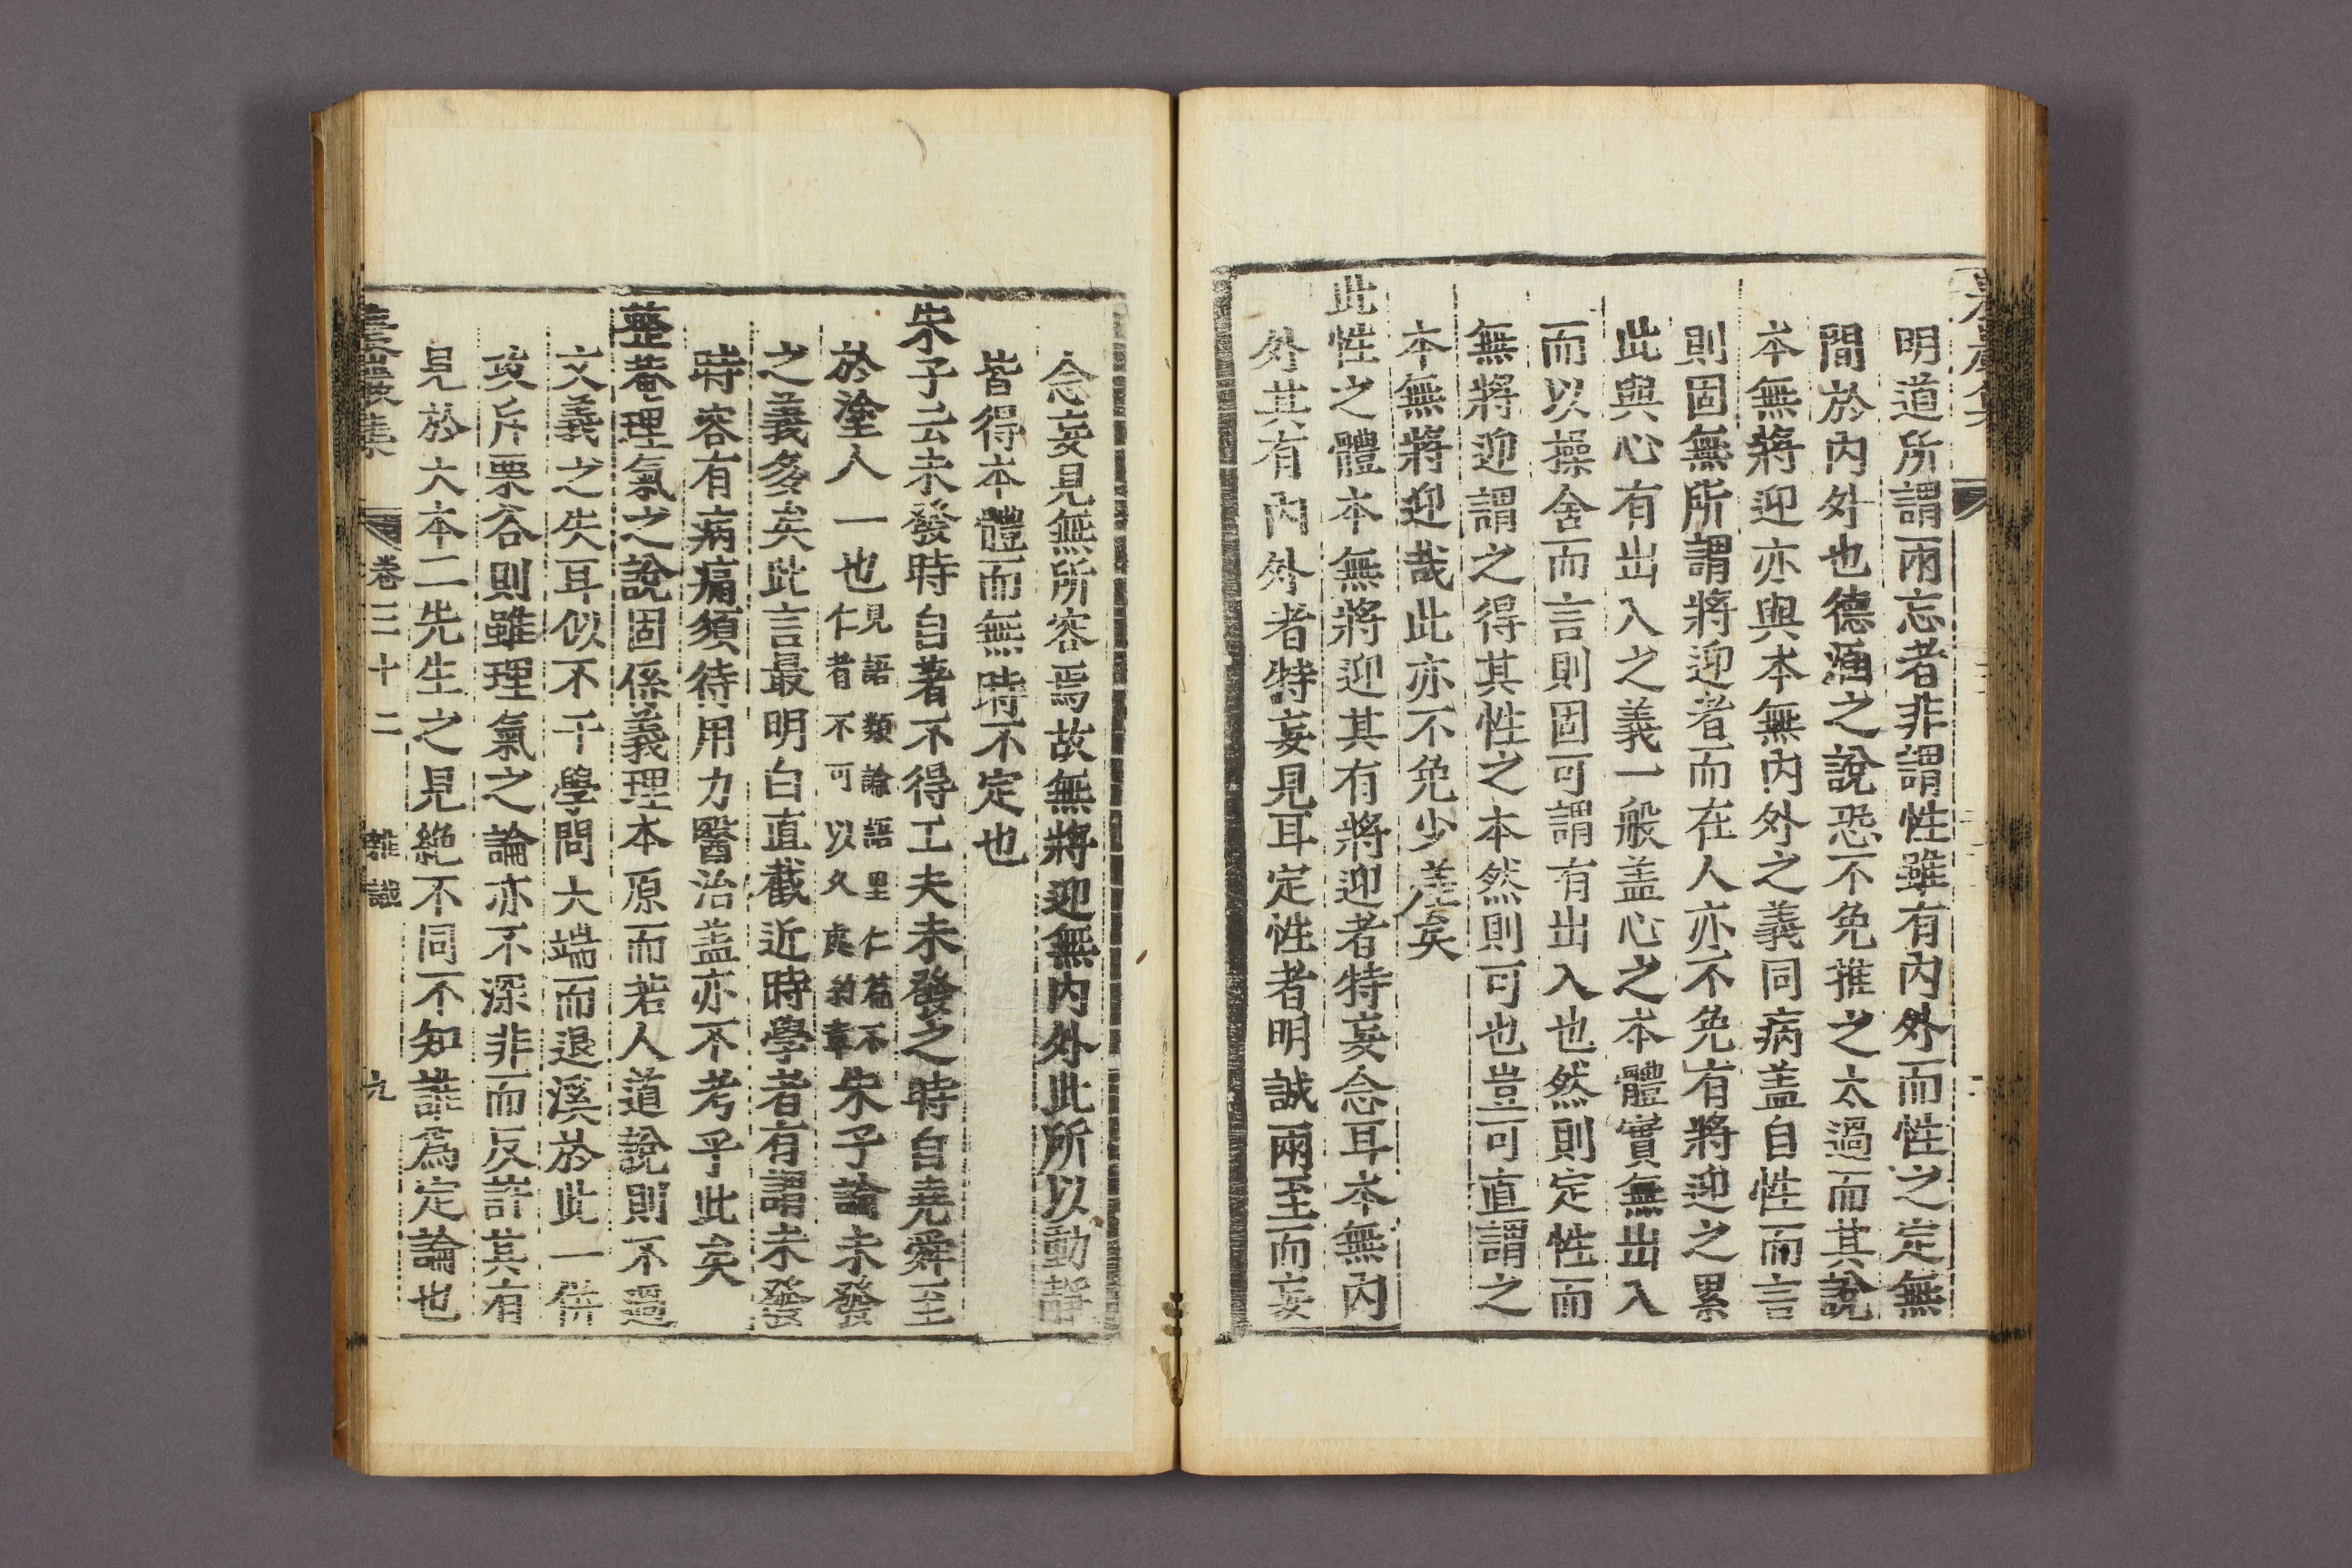 明道所謂兩忘者非謂性雖有內外而性之定無
間於內外也德涵之說恐不免推之太過而其說
本無將迎亦與本無內外之義同病盖自性而言
則固無所謂將迎者而在人亦不免有將迎之累
此與心有出入之義一般盖心之本體實無出入
而以操舍而言則固可謂有出入也然則定性而
無將迎謂之得其性之本然則可也豈可直謂之
本無將迎哉此亦不免少差矣
此性之體本無將迎其有將迎者特妄念耳本無內
外其有內外者特妄見耳定性者明誠兩至而妄
念妄見無所容焉故無將迎無內外此所以動靜
皆得本體而無時不定也
朱子云未發時自著不得工夫未發之時自堯舜至
於塗人一也見語類論語里仁篇不
仁者不可以久處約章朱子論未發
之義多矣此言最明白直截近時學者有謂未發
時容有病痛須待用力醫治盖亦不考乎此矣
整菴理氣之說固係義理本原而若人道說則不過
文義之失耳似不干學問大端而退溪於此一併
峻斥栗谷則雖理氣之論亦不深非而反許其有
見於大本二先生之見絶不同不知誰爲定論也
卷三十二
雜識
九